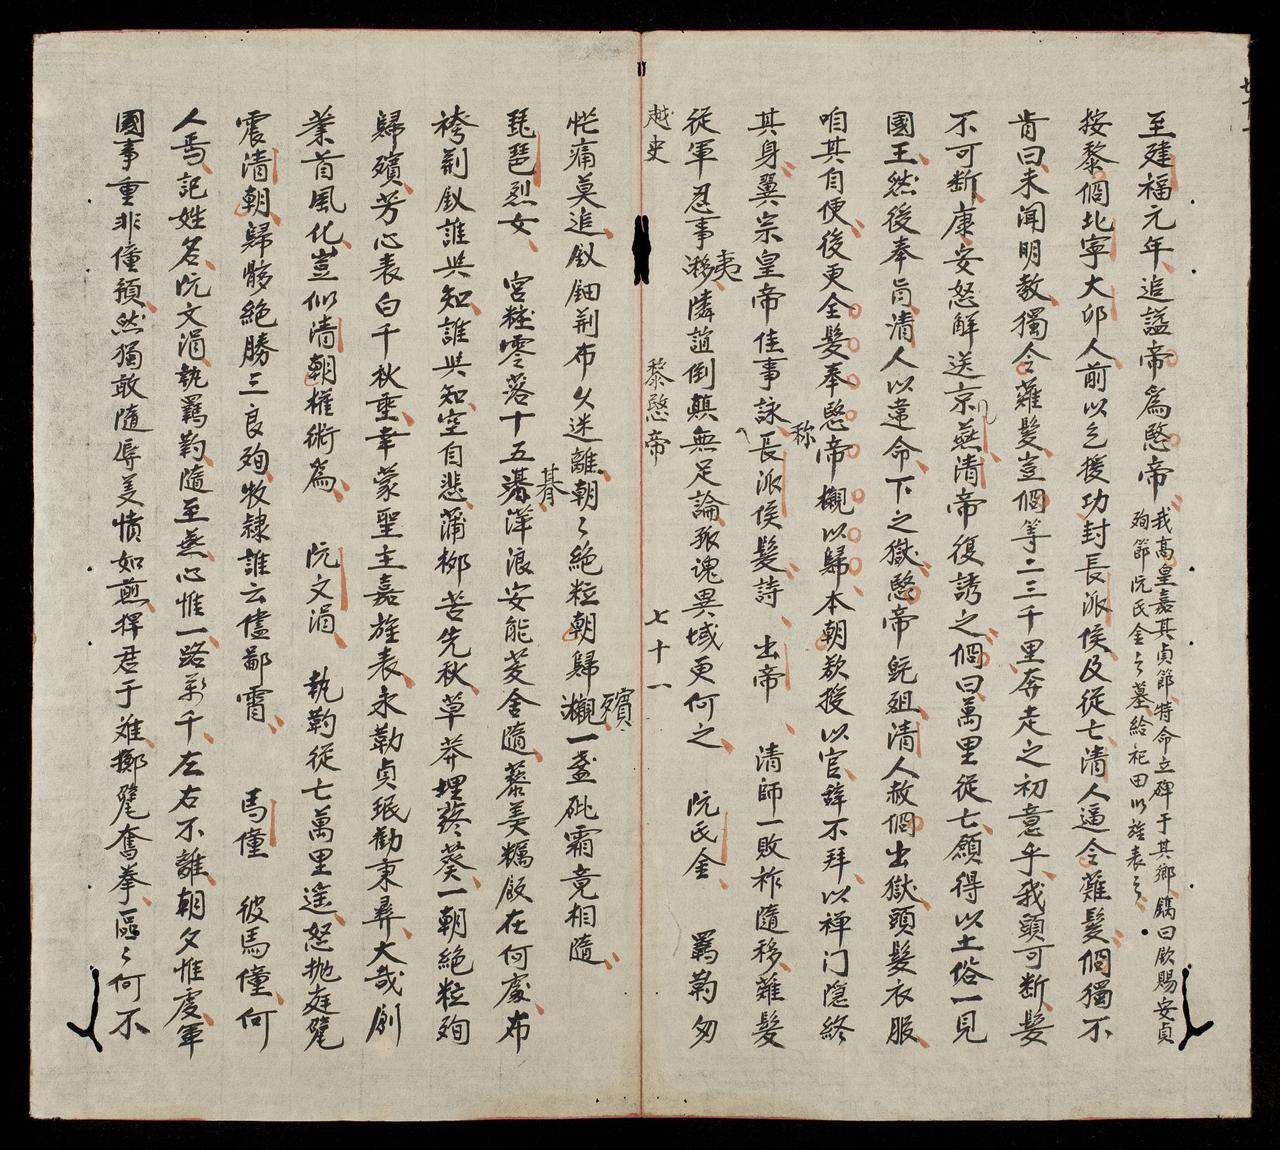 至建福元年追謚帝為愍帝我高皇嘉其貞節特命立碑于其鄉鐫曰歃賜安貞
殉節阮氏金之墓給祀田以旌表之
按黎侗北寧大卯人前以乞援功封長派侯及從亡清人逼令薙髮侗獨不
肯曰未聞明教獨令薙髮豈侗等二三千里奔走之初意乎我頭可斷髮
不可斷康安怒解送京燕清帝復誘之侗曰萬里從亡願得以土俗一見
國王然後奉旨清人以違命下之獄愍帝既殂清人赦侗出獄頭髮衣服
咱其自便後更全髮奉愍帝櫬以歸本朝欲授以官辭不拜以禪门隱終
其身翼宗皇帝佳事詠称長派侯髮詩 出帝 清師一敗祚隨移薙髮
從軍忍事夷漪隣誼倒顛無足論孤魂異域更何之 阮氏金 羈靮匆
越史 黎愍帝 七十一
忙痛莫追釵鈿荆布久迷離朝々絶粒朝歸櫬殯一盞砒霜竟相隨
琵琶烈女 宮粧零落十五朞滓浪安能菱舍隨藜羙糲飯在何處布
袴荆釵誰與知誰與知空自悲蒲栁苦先秋草莽埋終葵一朝絶粒殉
歸殯芳心表白千秋垂幸蒙聖主嘉旌表永勒貞珉勸秉彞大哉創
業首風化豈似清朝權術為 阮文涓 執靮從亡萬里遥怒抛庭甓
震清朝歸骖絶勝三良殉牧隸誰云儘鄙霄 馬僮 彼馬僮何
人焉記姓名阮文涓執羈靮隨至燕心惟一路萬千左右不離朝夕惟虔軍
國事重非僮預然獨敢隨辱羙憤如煎捍君于难擲甓奮拳區々何不